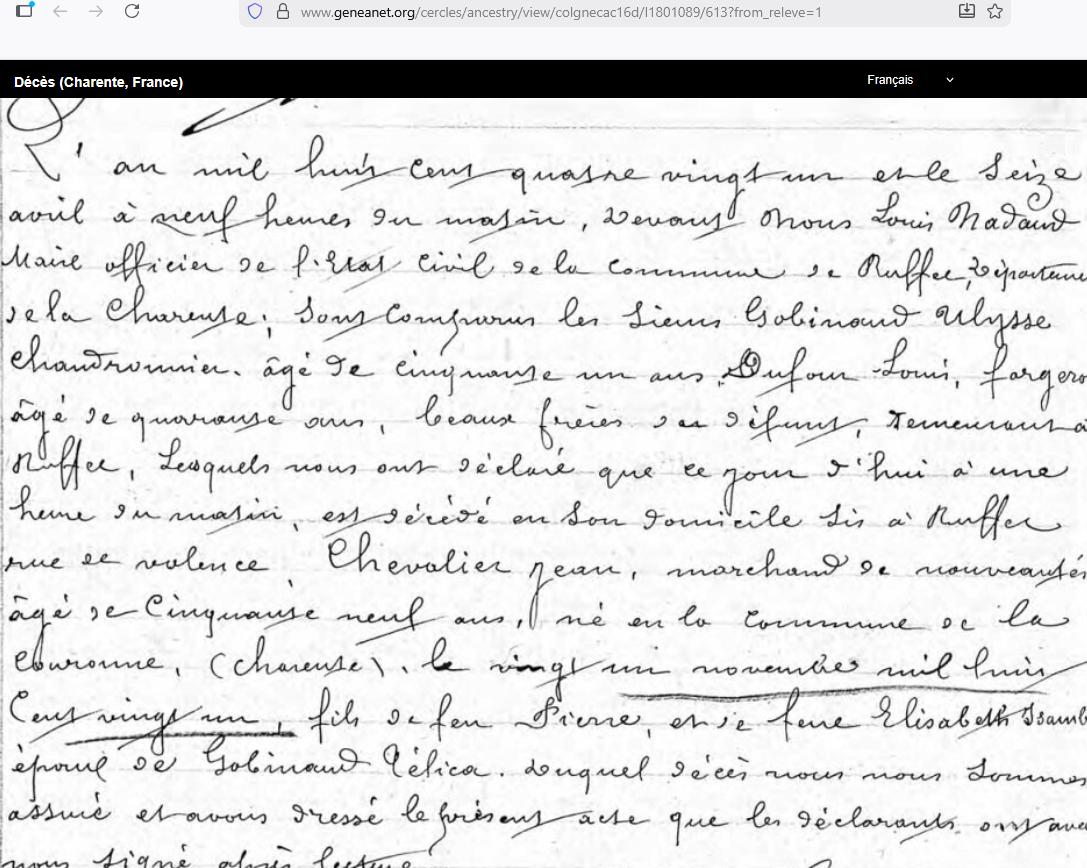 www.geneanet.org/cercles/ancestry/view/colgnecac16d/I1801089/613?from_releve=1
Décès (Charente, France)
Français
L'an mil huit cent quatre vingt un et le Seize
avril à neuf heures du matin, devant Nous Louis Nadaud
Maire officier de l'Etat civil de la commune de Ruffec, Départeme
de la Charente, sont comparus les sieurs Gobinaud Ulysse
chaudronnier, âgé de cinquante un ans, Dufour Louis, forgero
âgé de quarante ans, beaux frères du défunt, demeurant à
Ruffec, Lesquels nous ont déclaré que ce jour d'hui à une
heure du matin, est décédé en son domicile sis à Ruffec
rue de valence, Chevalier Jean, marchand de nouveautés
âgé de Cinquante neuf ans, né en la commune de la
Couronne, (charente), le vingt un novembre mil huit
Cent vingt un, fils de feu Pierre, et de feue Elisabeth Isamb
époux de Gobinaud Lélica. Duquel décès nous nous sommes
assuré et avons dressé le présent acte que les déclarants ont ave
nous signé après lecture